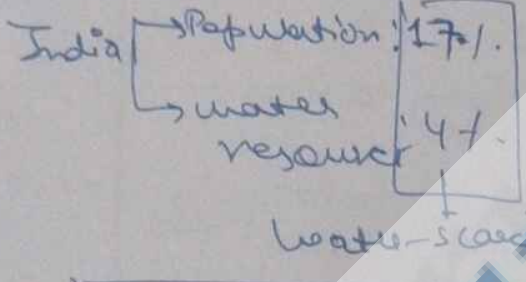 India → Population: 17%.
→ water
resource 4%.
water-scarc